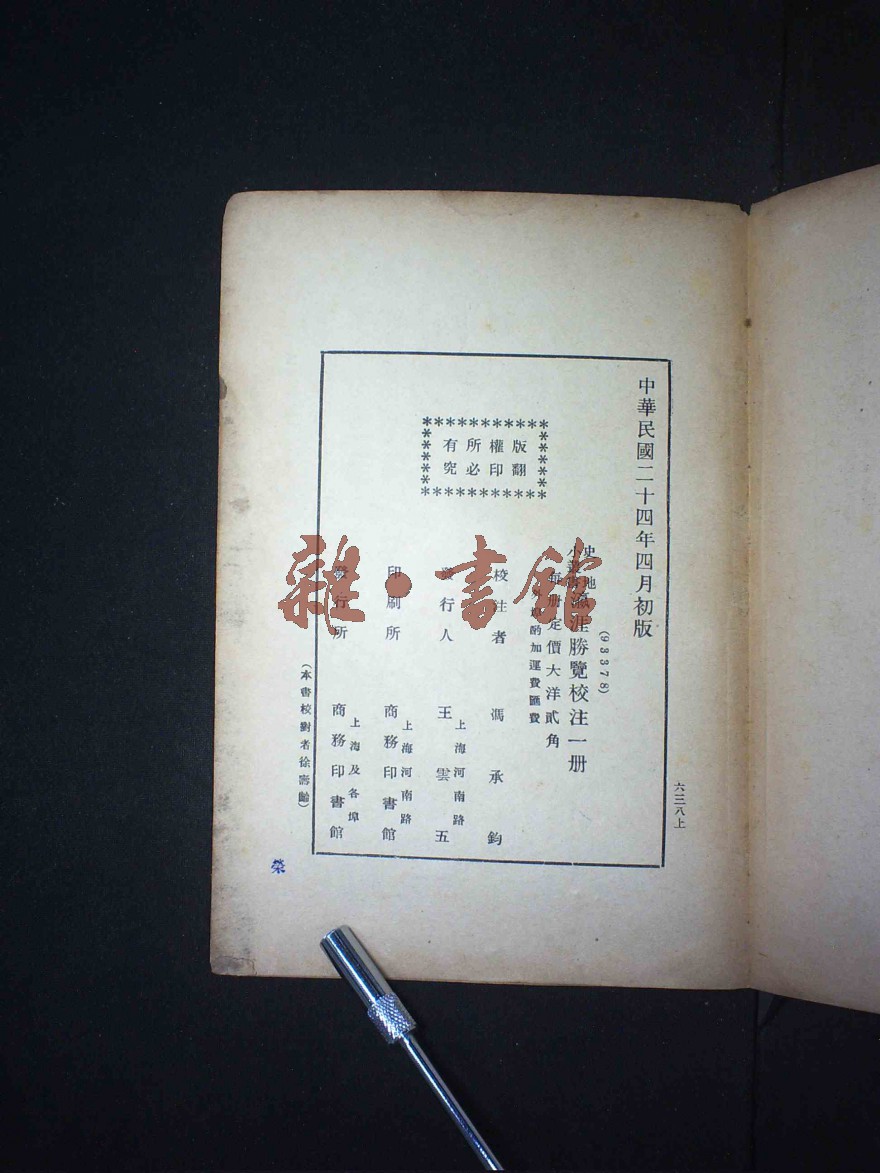 中華民國二十四年四月初版
六三八上
(93378)
史地
小叢書
瀛涯勝覽校注一册
每册定價大洋貳角
外埠酌加運費匯費
版權所有
翻印必究
校注者 馮承鈞
發行人 王雲五
上海河南路
印刷所 商務印書館
上海河南路
發行所 商務印書館
上海及各埠
(本書校對者徐壽齡)
榮
雜·書館